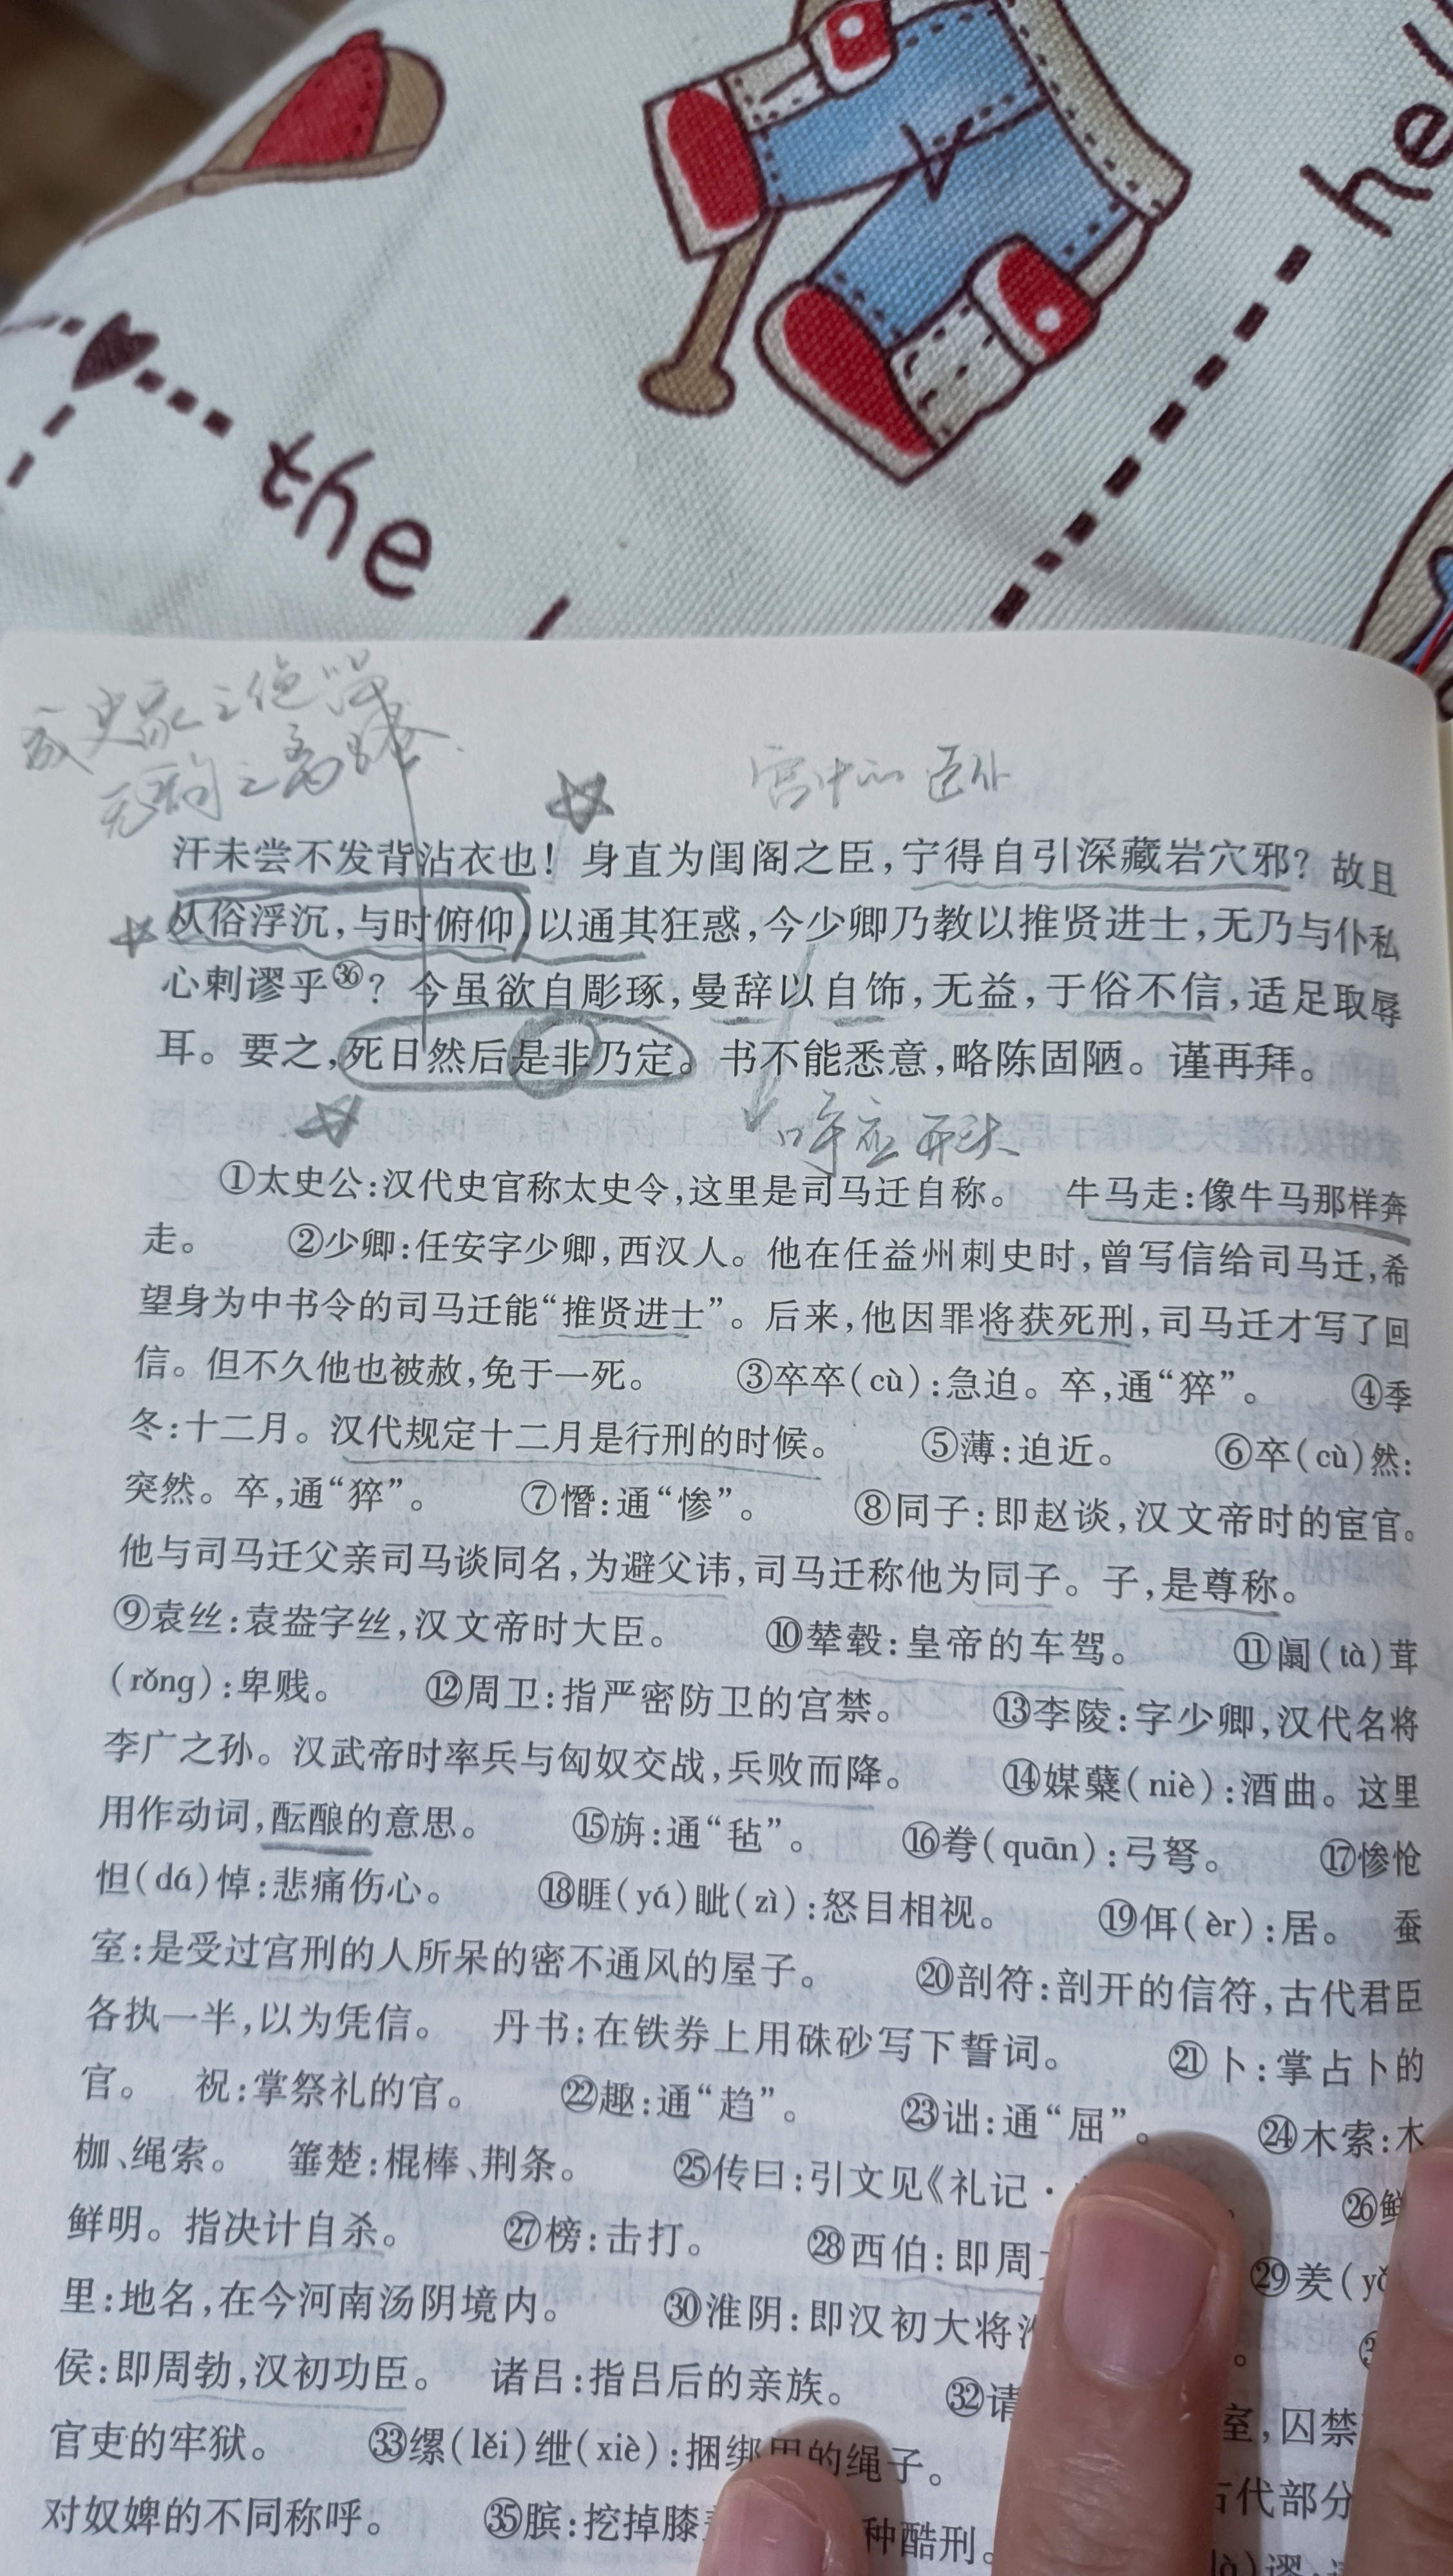 he
the
史家之绝唱
无韵之离骚
宫中的
汗未尝不发背沾衣也！身直为闺阁之臣，宁得自引深藏岩穴邪？故且
从俗浮沉，与时俯仰，以通其狂惑，今少卿乃教以推贤进士，无乃与仆私
心剌谬乎㊱？今虽欲自彫琢，曼辞以自饰，无益，于俗不信，适足取辱
耳。要之，死日然后是非乃定。书不能悉意，略陈固陋。谨再拜。
呼应开头
①太史公：汉代史官称太史令，这里是司马迁自称。 牛马走：像牛马那样奔
走。 ②少卿：任安字少卿，西汉人。他在任益州刺史时，曾写信给司马迁，希
望身为中书令的司马迁能“推贤进士”。后来，他因罪将获死刑，司马迁才写了回
信。但不久他也被赦，免于一死。 ③卒卒(cù)：急迫。卒，通“猝”。 ④季
冬：十二月。汉代规定十二月是行刑的时候。 ⑤薄：迫近。 ⑥卒(cù)然：
突然。卒，通“猝”。 ⑦憯：通“惨”。 ⑧同子：即赵谈，汉文帝时的宦官。
他与司马迁父亲司马谈同名，为避父讳，司马迁称他为同子。子，是尊称。
⑨袁丝：袁盎字丝，汉文帝时大臣。 ⑩辇毂：皇帝的车驾。 ⑪阘(tà)茸
(rǒng)：卑贱。 ⑫周卫：指严密防卫的宫禁。 ⑬李陵：字少卿，汉代名将
李广之孙。汉武帝时率兵与匈奴交战，兵败而降。 ⑭媒蘖(niè)：酒曲。这里
用作动词，酝酿的意思。 ⑮旃：通“毡”。 ⑯弮(quān)：弓弩。 ⑰惨怆
怛(dá)悼：悲痛伤心。 ⑱睚(yá)眦(zì)：怒目相视。 ⑲佴(èr)：居。 蚕
室：是受过宫刑的人所呆的密不通风的屋子。 ⑳剖符：剖开的信符，古代君臣
各执一半，以为凭信。 丹书：在铁券上用硃砂写下誓词。 ㉑卜：掌占卜的
官。 祝：掌祭礼的官。 ㉒趣：通“趋”。 ㉓诎：通“屈”。 ㉔木索：木
枷、绳索。 箠楚：棍棒、荆条。 ㉕传曰：引文见《礼记· ㉖鲜
鲜明。指决计自杀。 ㉗榜：击打。 ㉘西伯：即周 ㉙羑(yǒ
里：地名，在今河南汤阴境内。 ㉚淮阴：即汉初大将 。
侯：即周勃，汉初功臣。 诸吕：指吕后的亲族。 ㉜请室，囚禁
官吏的牢狱。 ㉝缧(lěi)绁(xiè)：捆绑用的绳子。 古代部分
对奴婢的不同称呼。 ㉟膑：挖掉膝 种酷刑。
谬